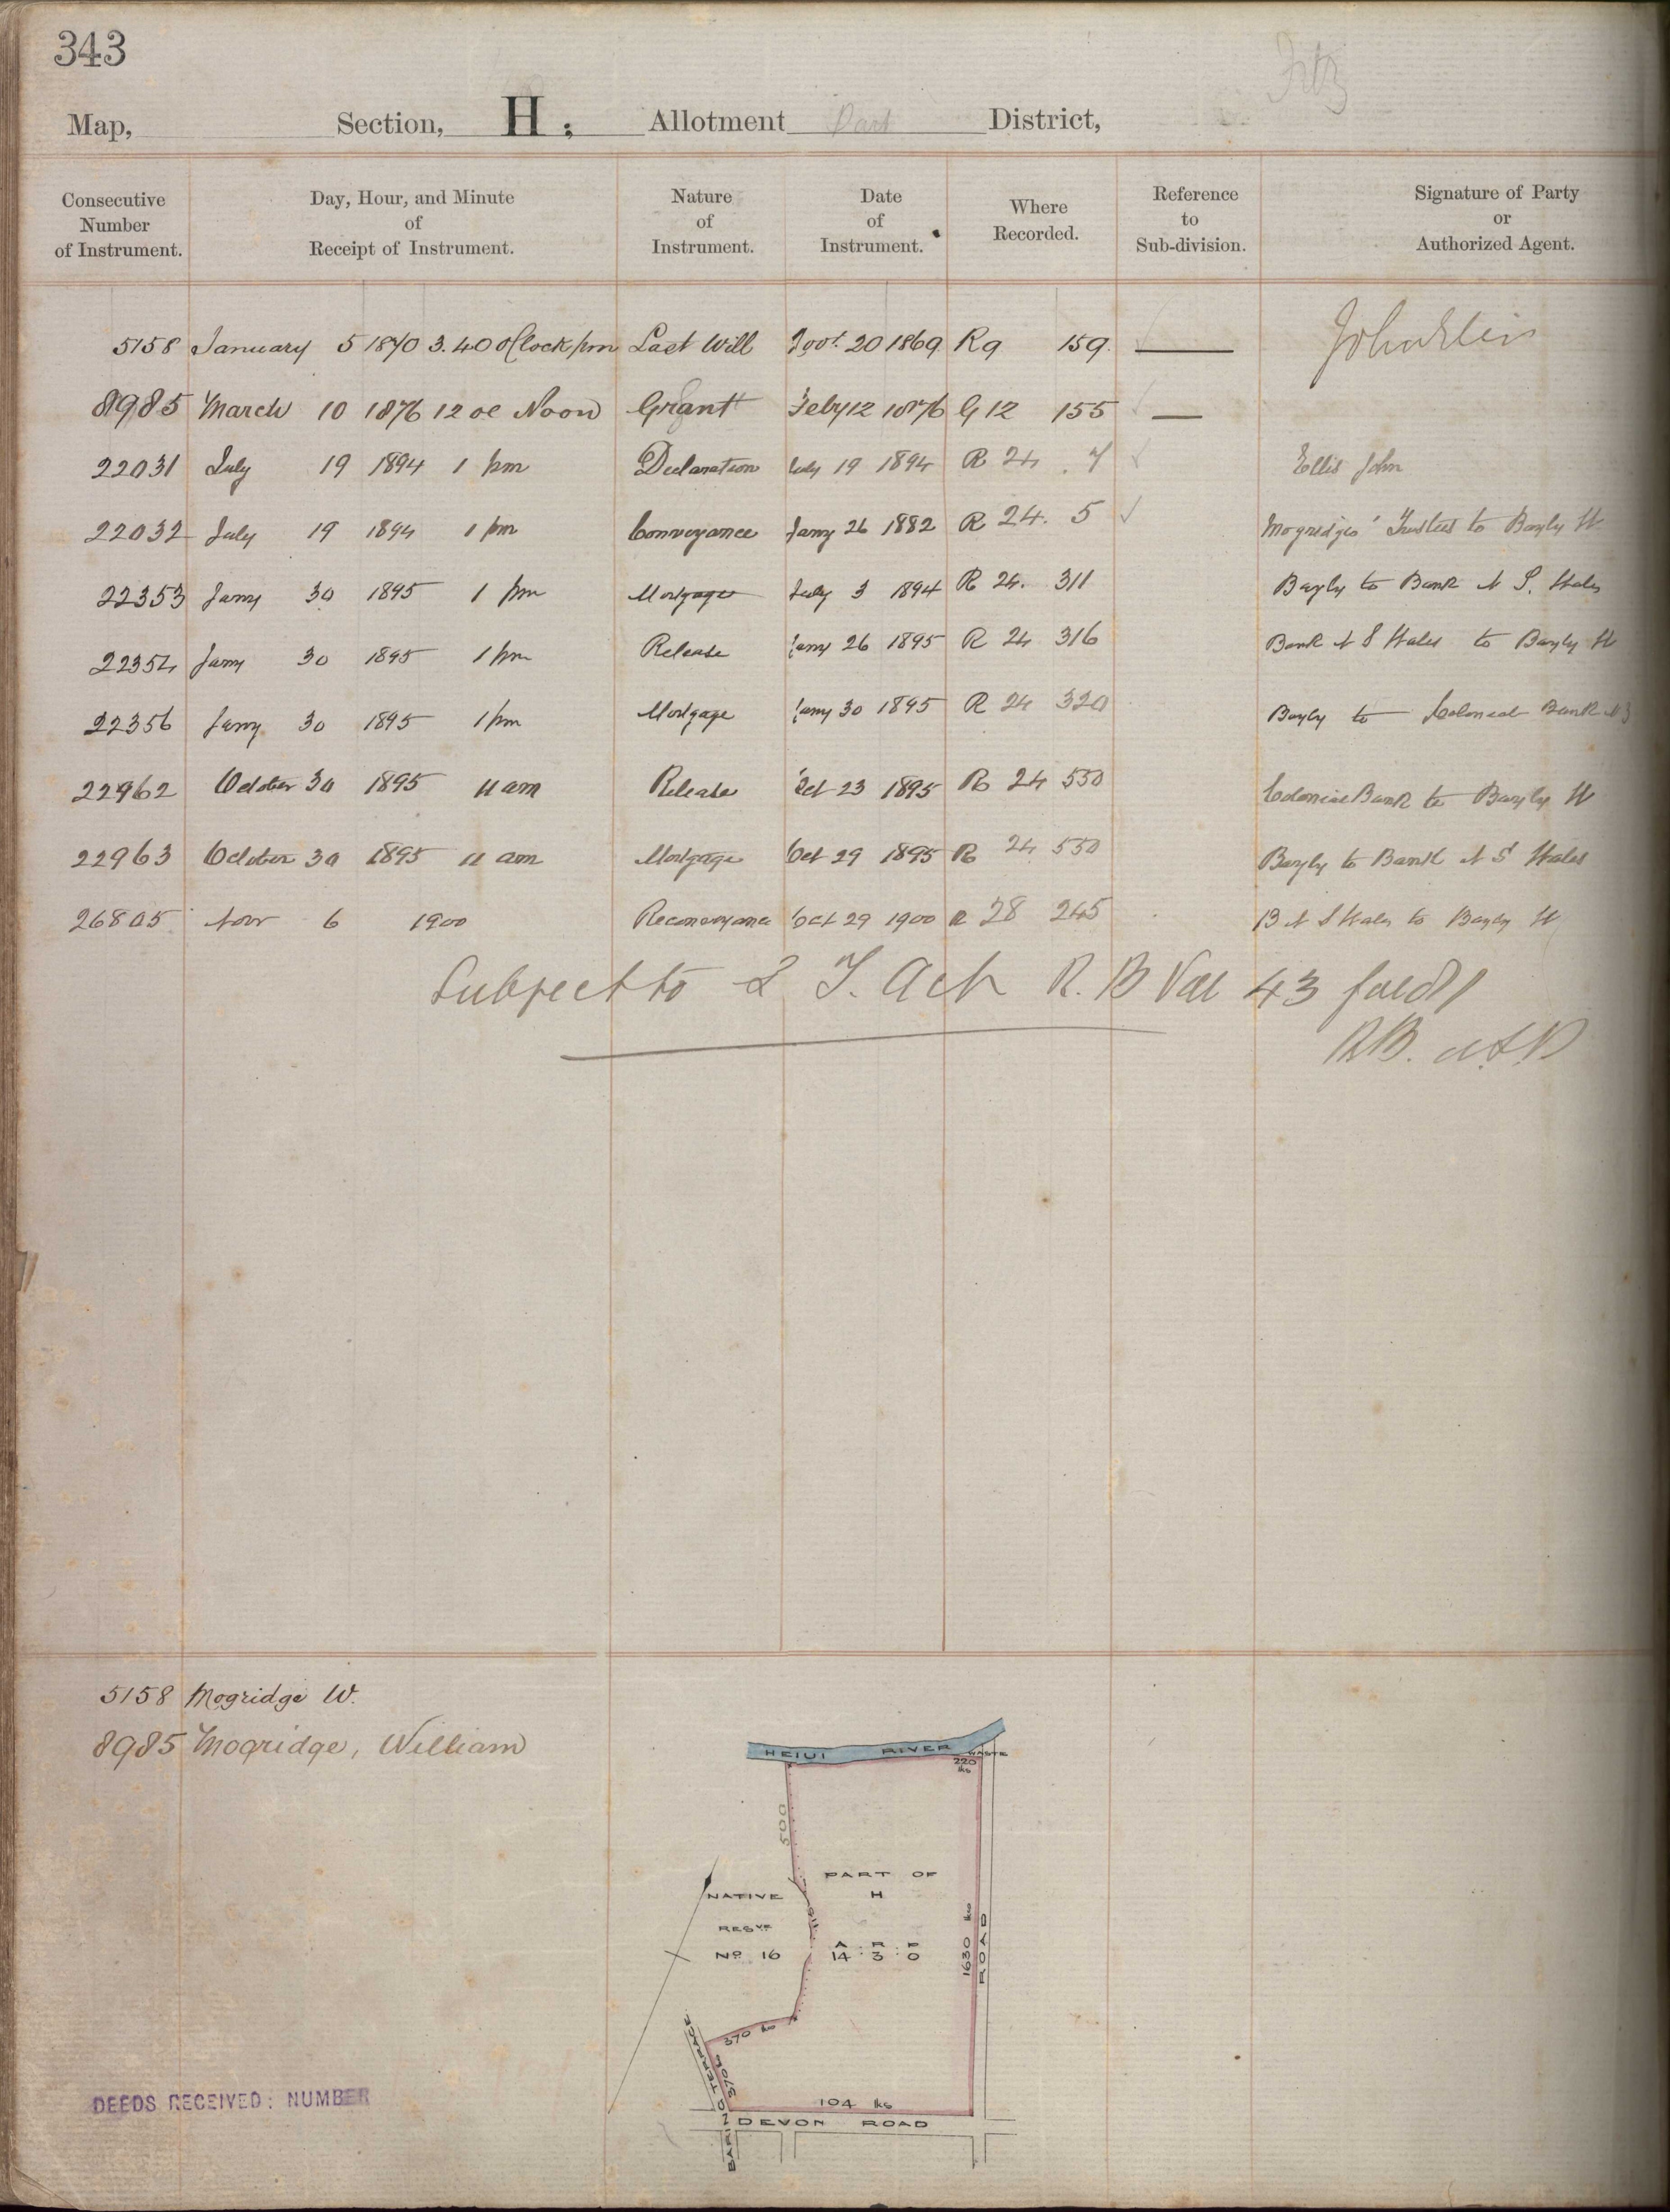 343
Map, Section, H; Allotment Part District,
Consecutive Number of Instrument. Day, Hour, and Minute of Receipt of Instrument. Nature of Instrument. Date of Instrument. Where Recorded. Reference to Sub-division. Signature of Party or Authorized Agent.
5158 January 5 1870 3.40 o'Clock pm Last Will 20 1869 R9 159 John Ellis
8985 March 10 1876 12 oc Noon Grant Feby 12 1876 G 12 155
22031 July 19 1894 1 pm Declaration July 19 1894 R 24 7 Ellis John
22032 July 19 1894 1 pm Conveyance Jany 26 1882 R 24. 5 Mogridges' Trustees to Bayly W
22353 Jany 30 1895 1 pm Mortgage July 3 1894 R 24. 311 Bayly to Bank N S. Wales
22354 Jany 30 1895 1 pm Release Jany 26 1895 R 24 316 Bank N S Wales to Bayly W
22356 Jany 30 1895 1 pm Mortgage Jany 30 1895 R 24 320 Bayly to Colonial Bank NZ
22962 October 30 1895 11 am Release Oct 23 1895 R 24 550 Colonial Bank to Bayly W
22963 October 30 1895 11 am Mortgage Oct 29 1895 R 24 550 Bayly to Bank N S Wales
26805 Novr 6 1900 Reconveyance Oct 29 1900 R 28 245 B N S Wales to Bayly W
Subject to L T. Act R. B Vol 43
5158 Mogridge W.
8985 Mogridge, William
HEIUI RIVER
WASTE
220 lks
500
PART OF
H
NATIVE
RESVE
No 16
A R P
14 : 3 : 0
1630 lks
ROAD
370 lks
370 lks
TERRACE
104 lks
DEVON ROAD
DEEDS RECEIVED: NUMBER